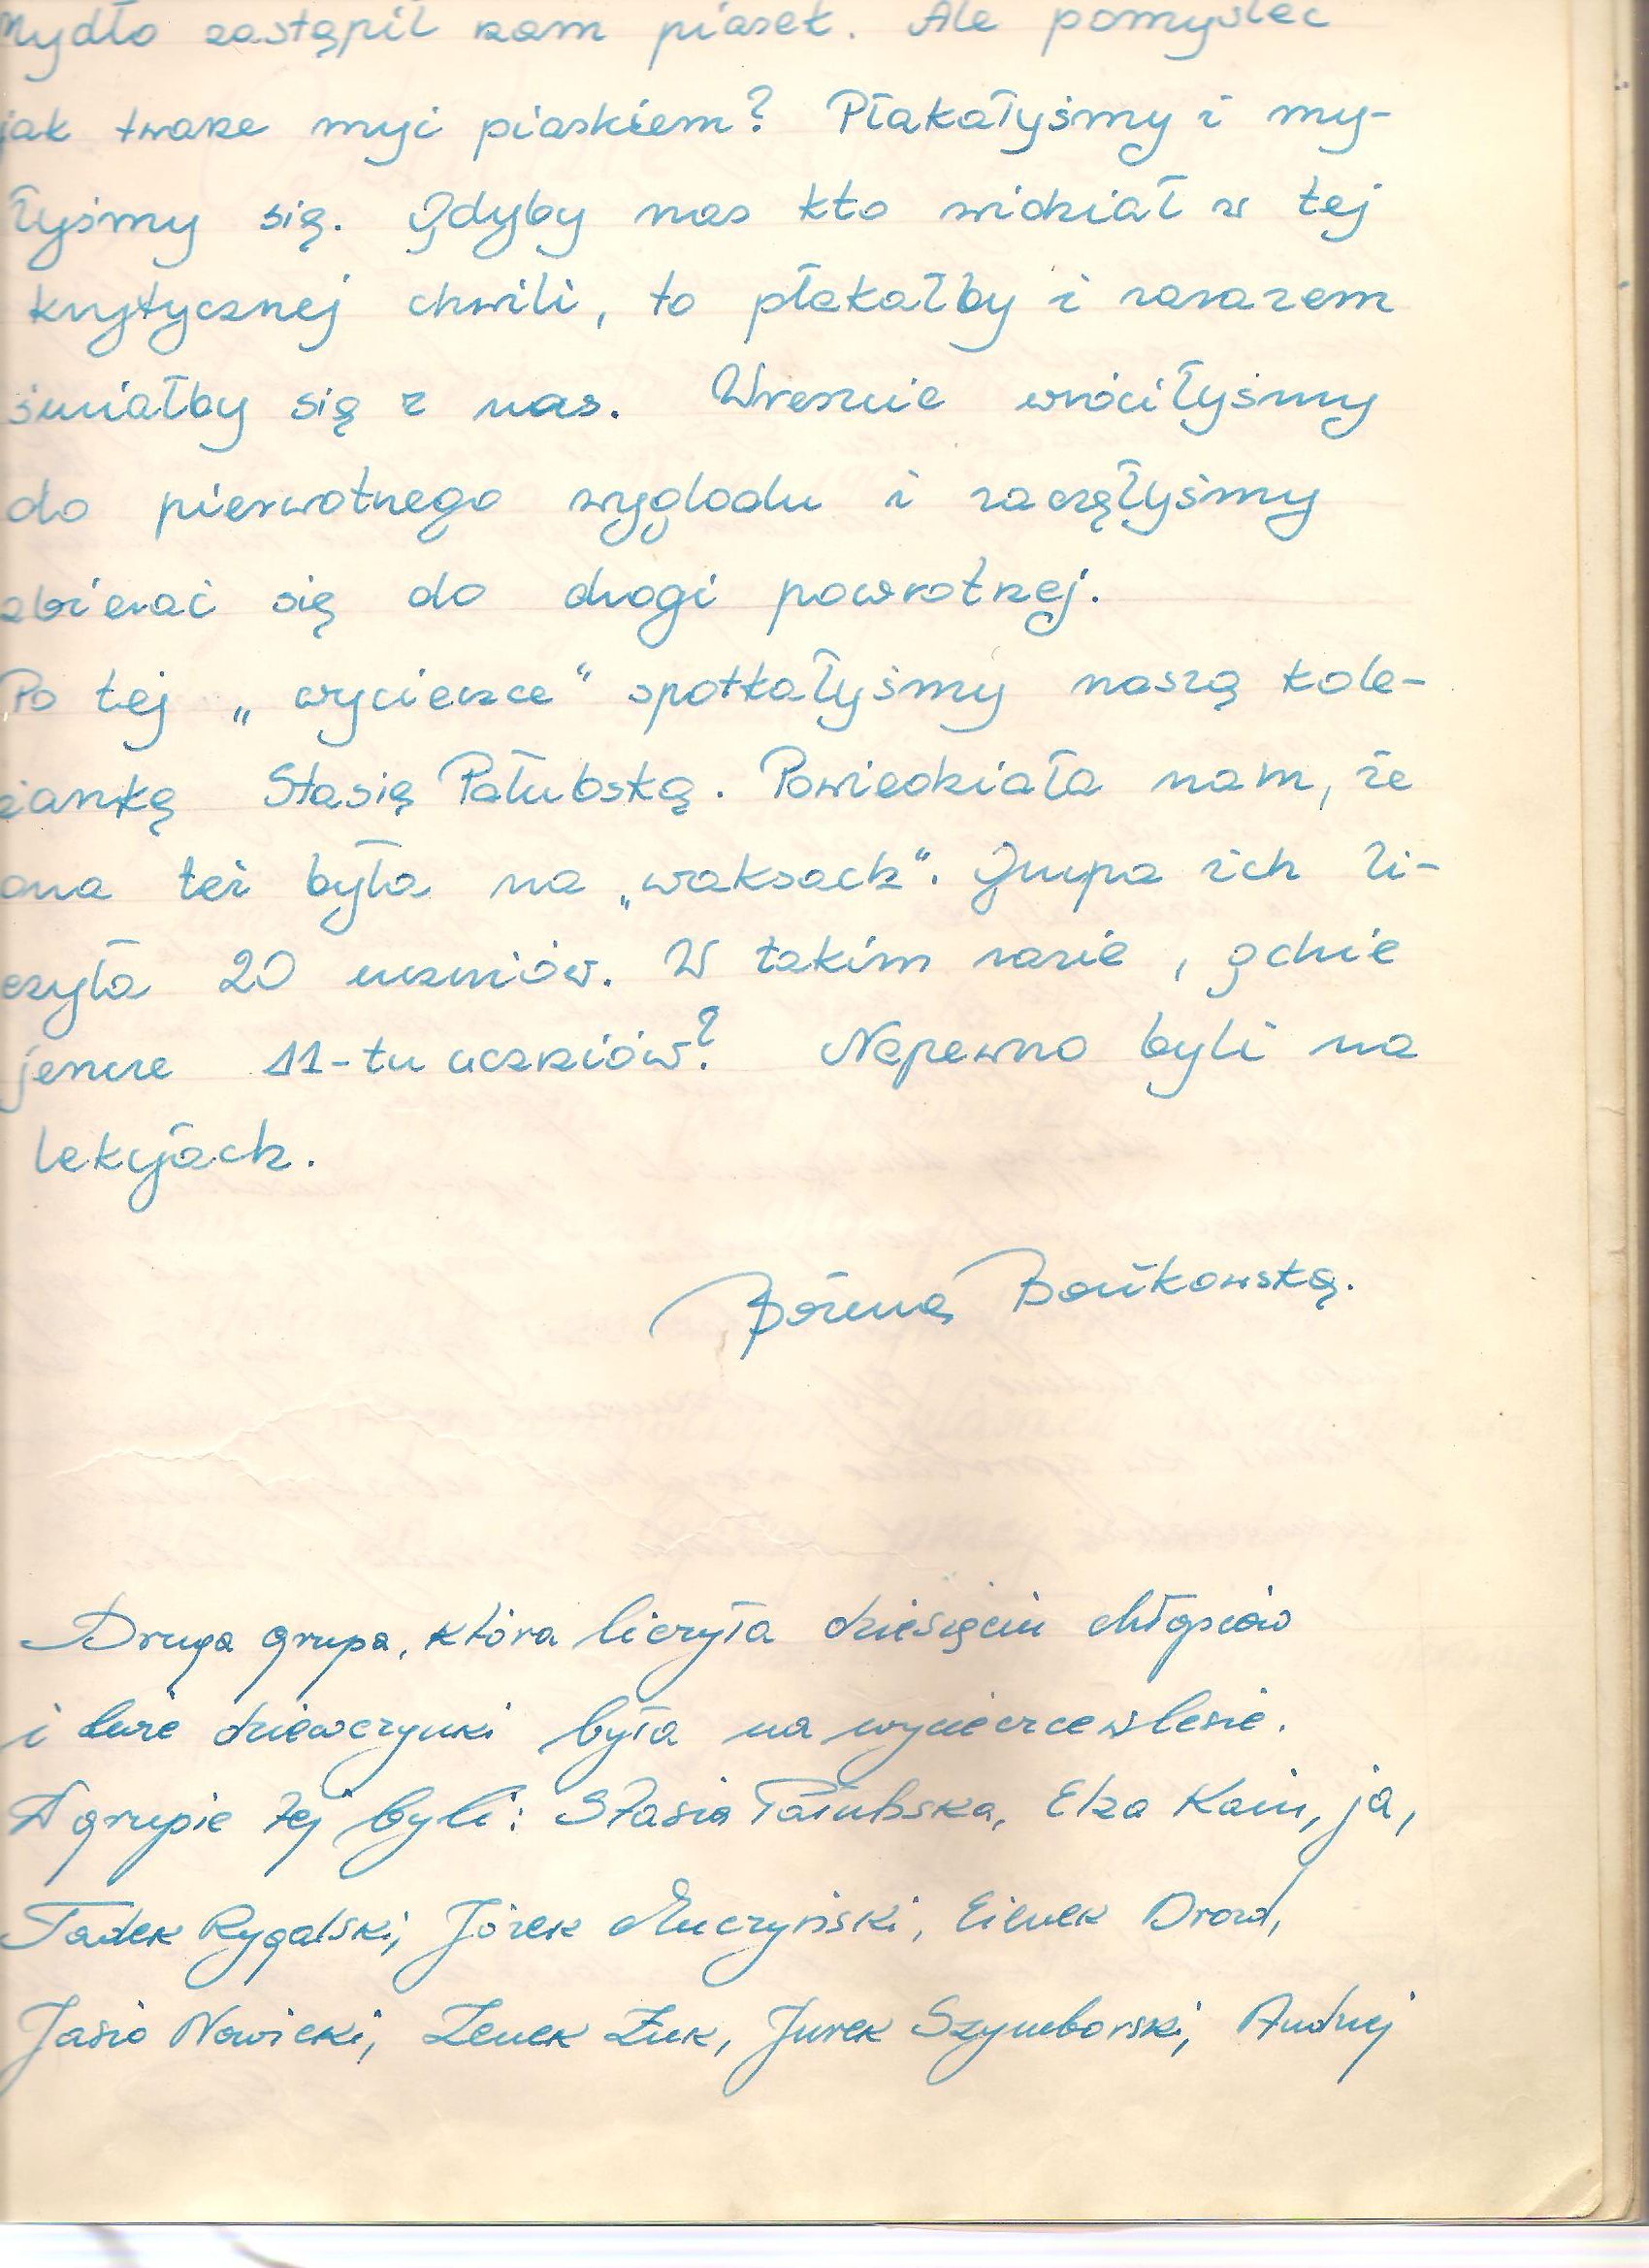 Mydło zastąpił nam piasek. Ale pomyśleć
jak twarze myć piaskiem? Płakałyśmy i my-
łyśmy się. Gdyby nas kto widział w tej
krytycznej chwili, to płakałby i zarazem
śmiałby się z nas. Wreszcie wróciłyśmy
do pierwotnego wyglądu i zaczęłyśmy
zbierać się do drogi powrotnej.
Po tej „wycieczce” spotkałyśmy naszą kole-
żankę Stasię Pałubską. Powiedziała nam, że
ona też była na „waksach”. Grupa ich li-
czyła 20 uczniów. W takim razie, gdzie
jeszcze 11-tu uczniów? Napewno byli na
lekcjach.
Bożena Bońkowska.
Druga grupa, która liczyła dziesięciu chłopców
i dwie dziewczynki była na wycieczce w lesie.
W grupie tej byli: Stasia Pałubska, Elza Kain, ja,
Tadek Rygalski, Józek Muczyński, Gienek Drozd,
Jasio Nowicki, Zenek Żuk, Jurek Szymborski, Andrzej